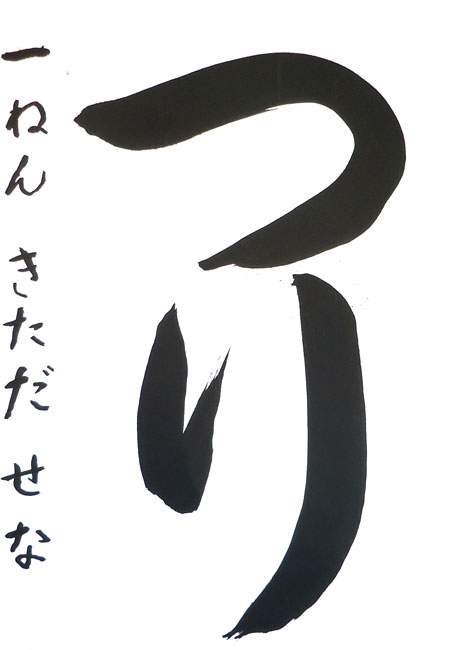 つり
一ねん きただ せな